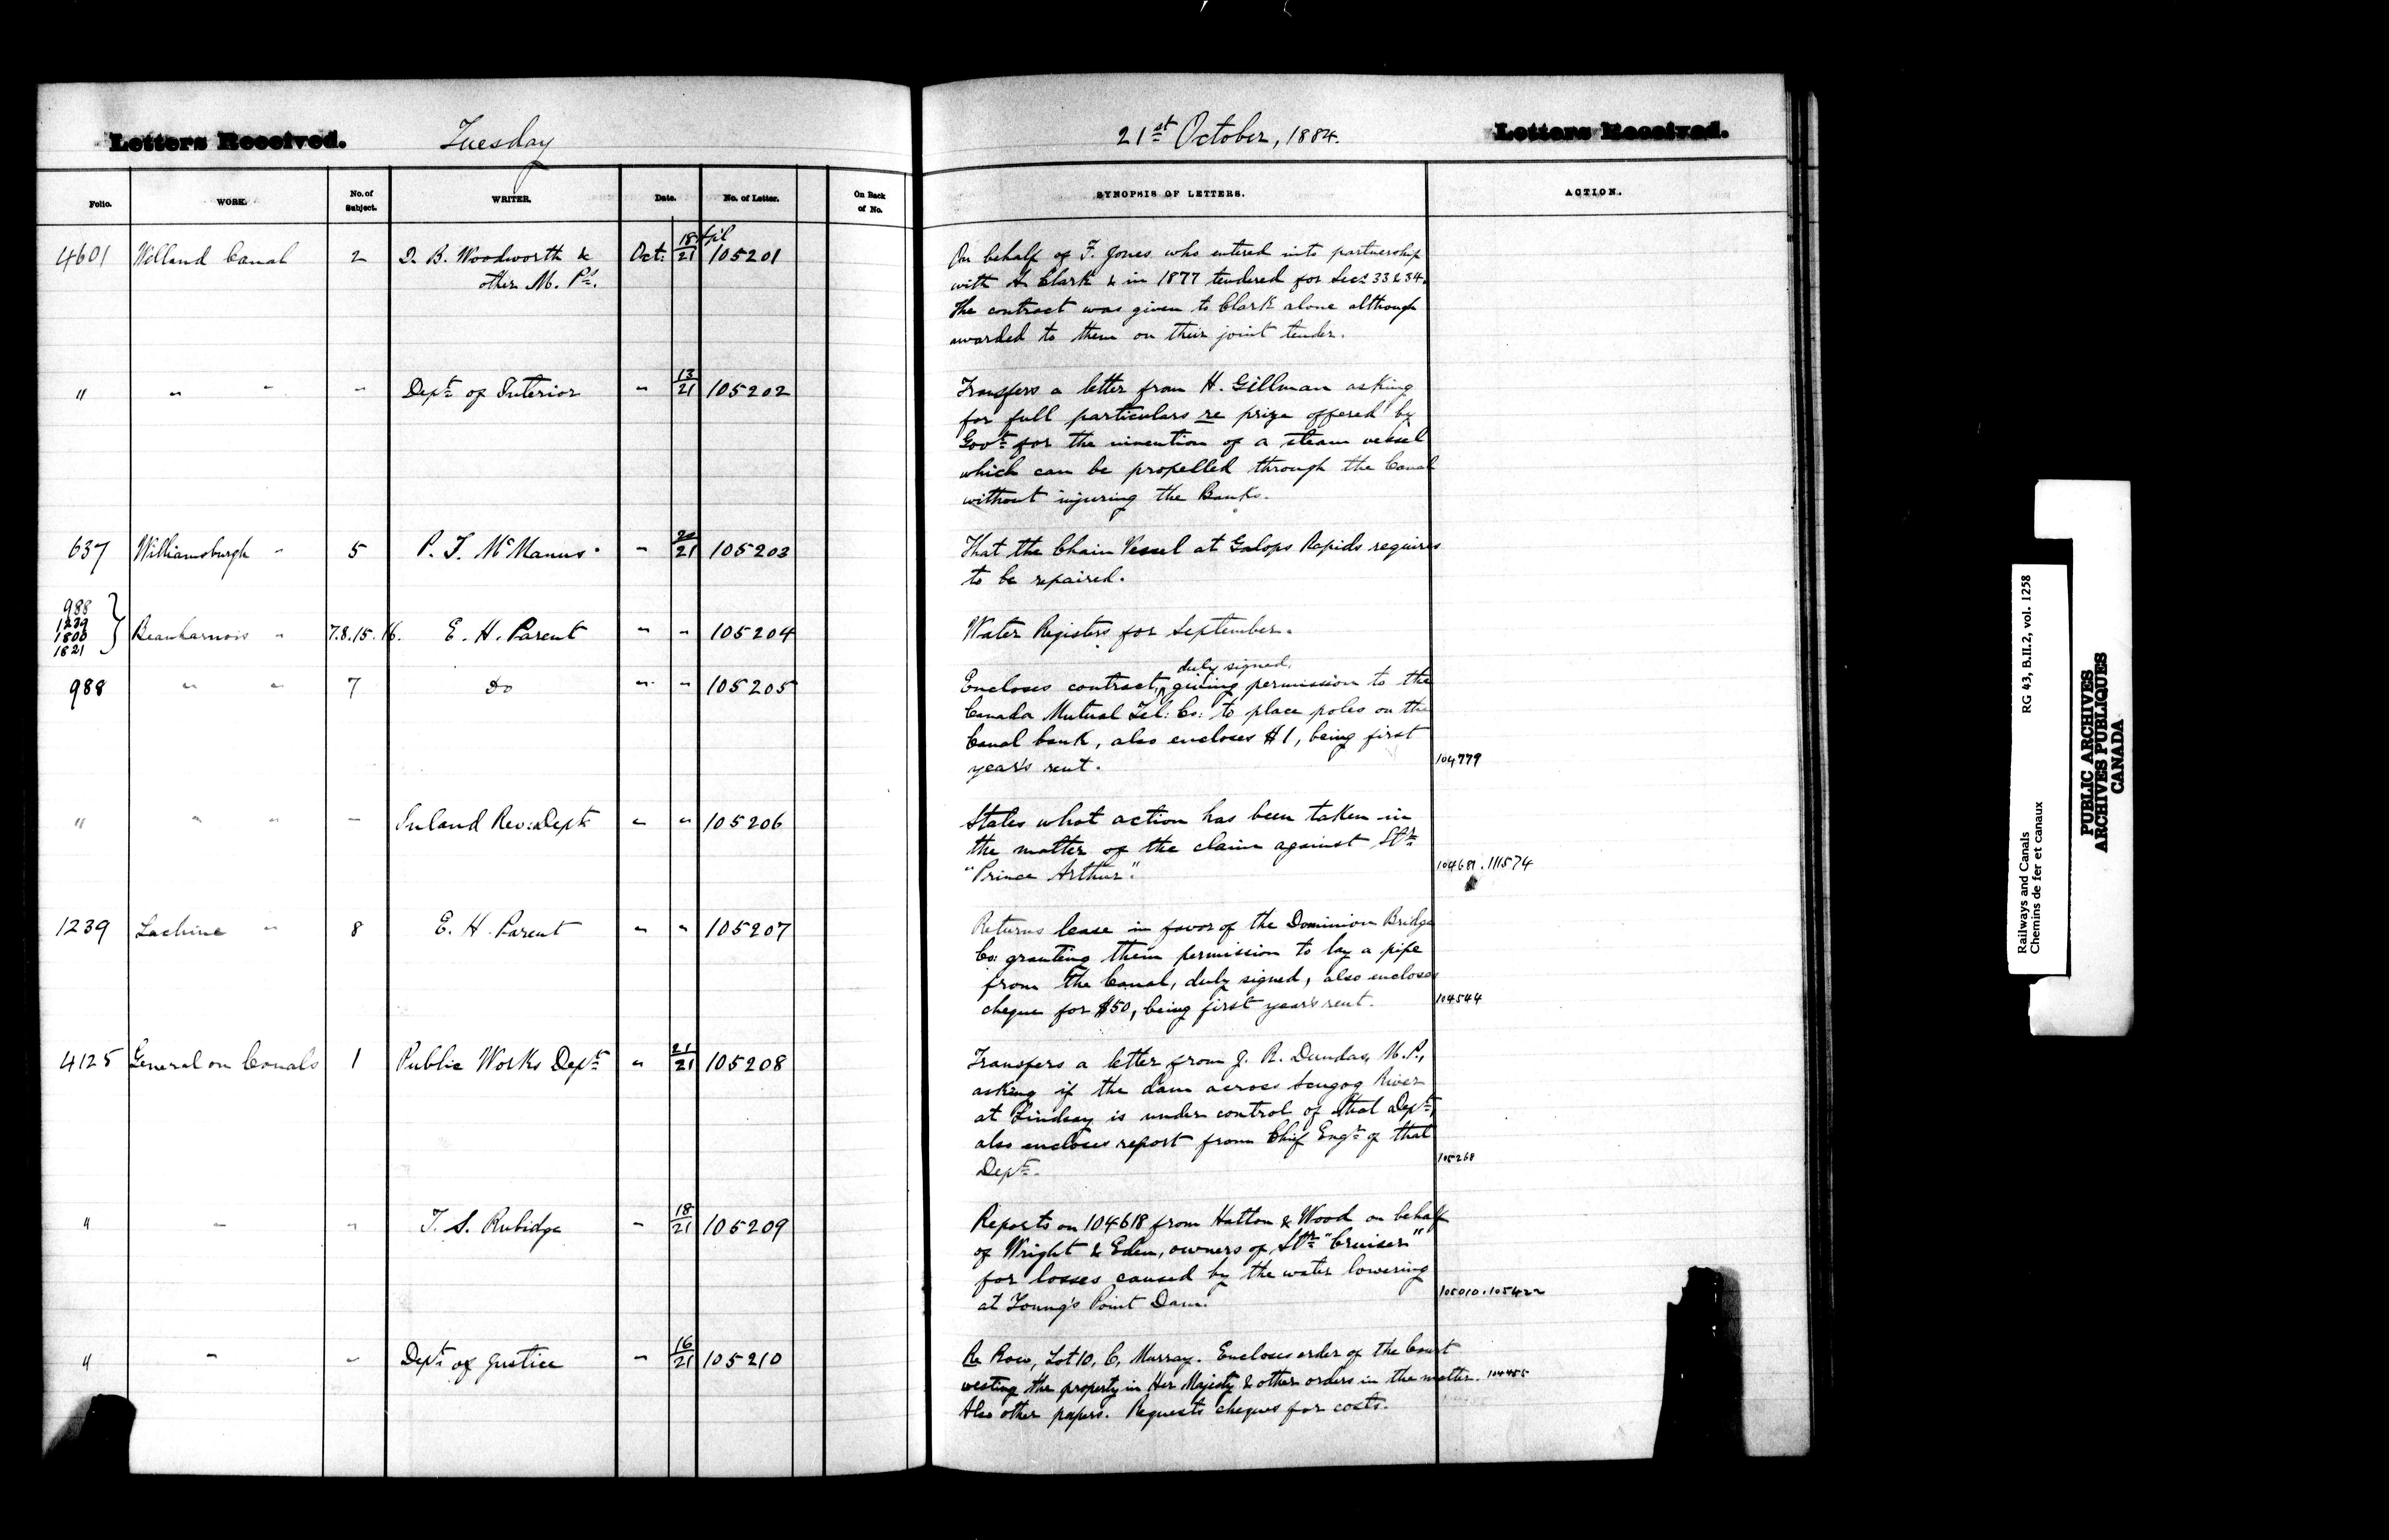 Letters Received. Tuesday
21st October, 1884. Letters Received.
Folio. WORK. No. of Subject. WRITER. Date. No. of Letter. On Back of No.
SYNOPSIS OF LETTERS. ACTION.
4601 Welland Canal 2 D. B. Woodworth & Oct. 18/21 105201
other M. Ps.
On behalf of F. Jones who entered into partnership
with A Clark & in 1877 tendered for Secs 33 & 34.
The contract was given to Clark alone although
awarded to them on their joint tender.
" " " " Dept of Interior " 13/21 105202
Transfers a letter from H. Gillman asking
for full particulars re prize offered by
Govt for the invention of a steam vessel
which can be propelled through the Canal
without injuring the Banks.
637 Williamsburgh " 5 P. T. McManus " 20/21 105203
That the Chain Vessel at Galops Rapids requires
to be repaired.
988
1239
1806
1821
Beauharnois " 7.8.15.16. E. H. Parent " " 105204
Water Registers for September.
988 " " 7 Do " " 105205
duly signed,
Encloses contract, giving permission to the
Canada Mutual Tel: Co: to place poles on the
Canal bank, also encloses $1, being first
year's rent. 104779
" " " " Inland Rev: Dept " " 105206
States what action has been taken in
the matter of the claim against Str
"Prince Arthur". 104681. 111574
1239 Lachine " 8 E. H. Parent " " 105207
Returns lease in favor of the Dominion Bridge
Co: granting them permission to lay a pipe
from the Canal, duly signed, also encloses
cheque for $50, being first year's rent. 104544
4125 General on Canals 1 Public Works Dept " 21/21 105208
Transfers a letter from J. R. Dundas, M.P.,
asking if the dam across Scugog River
at Lindsay is under control of that Dept,
also encloses report from Chief Engr of that
Dept. 105268
" " " T. S. Rubidge " 18/21 105209
Reports on 104618 from Hatton & Wood on behalf
of Wright & Eden, owners of Str "Cruiser"
for losses caused by the water lowering
at Young's Point Dam. 105010. 105422
" " " Dept of Justice " 16/21 105210
Re Row, Lot 10, C, Murray. Encloses order of the Court
vesting the property in Her Majesty & other orders in the matter. 104455
Also other papers. Requests cheques for costs.
Railways and Canals RG 43, B.II.2, vol. 1258
Chemins de fer et canaux
PUBLIC ARCHIVES
ARCHIVES PUBLIQUES
CANADA